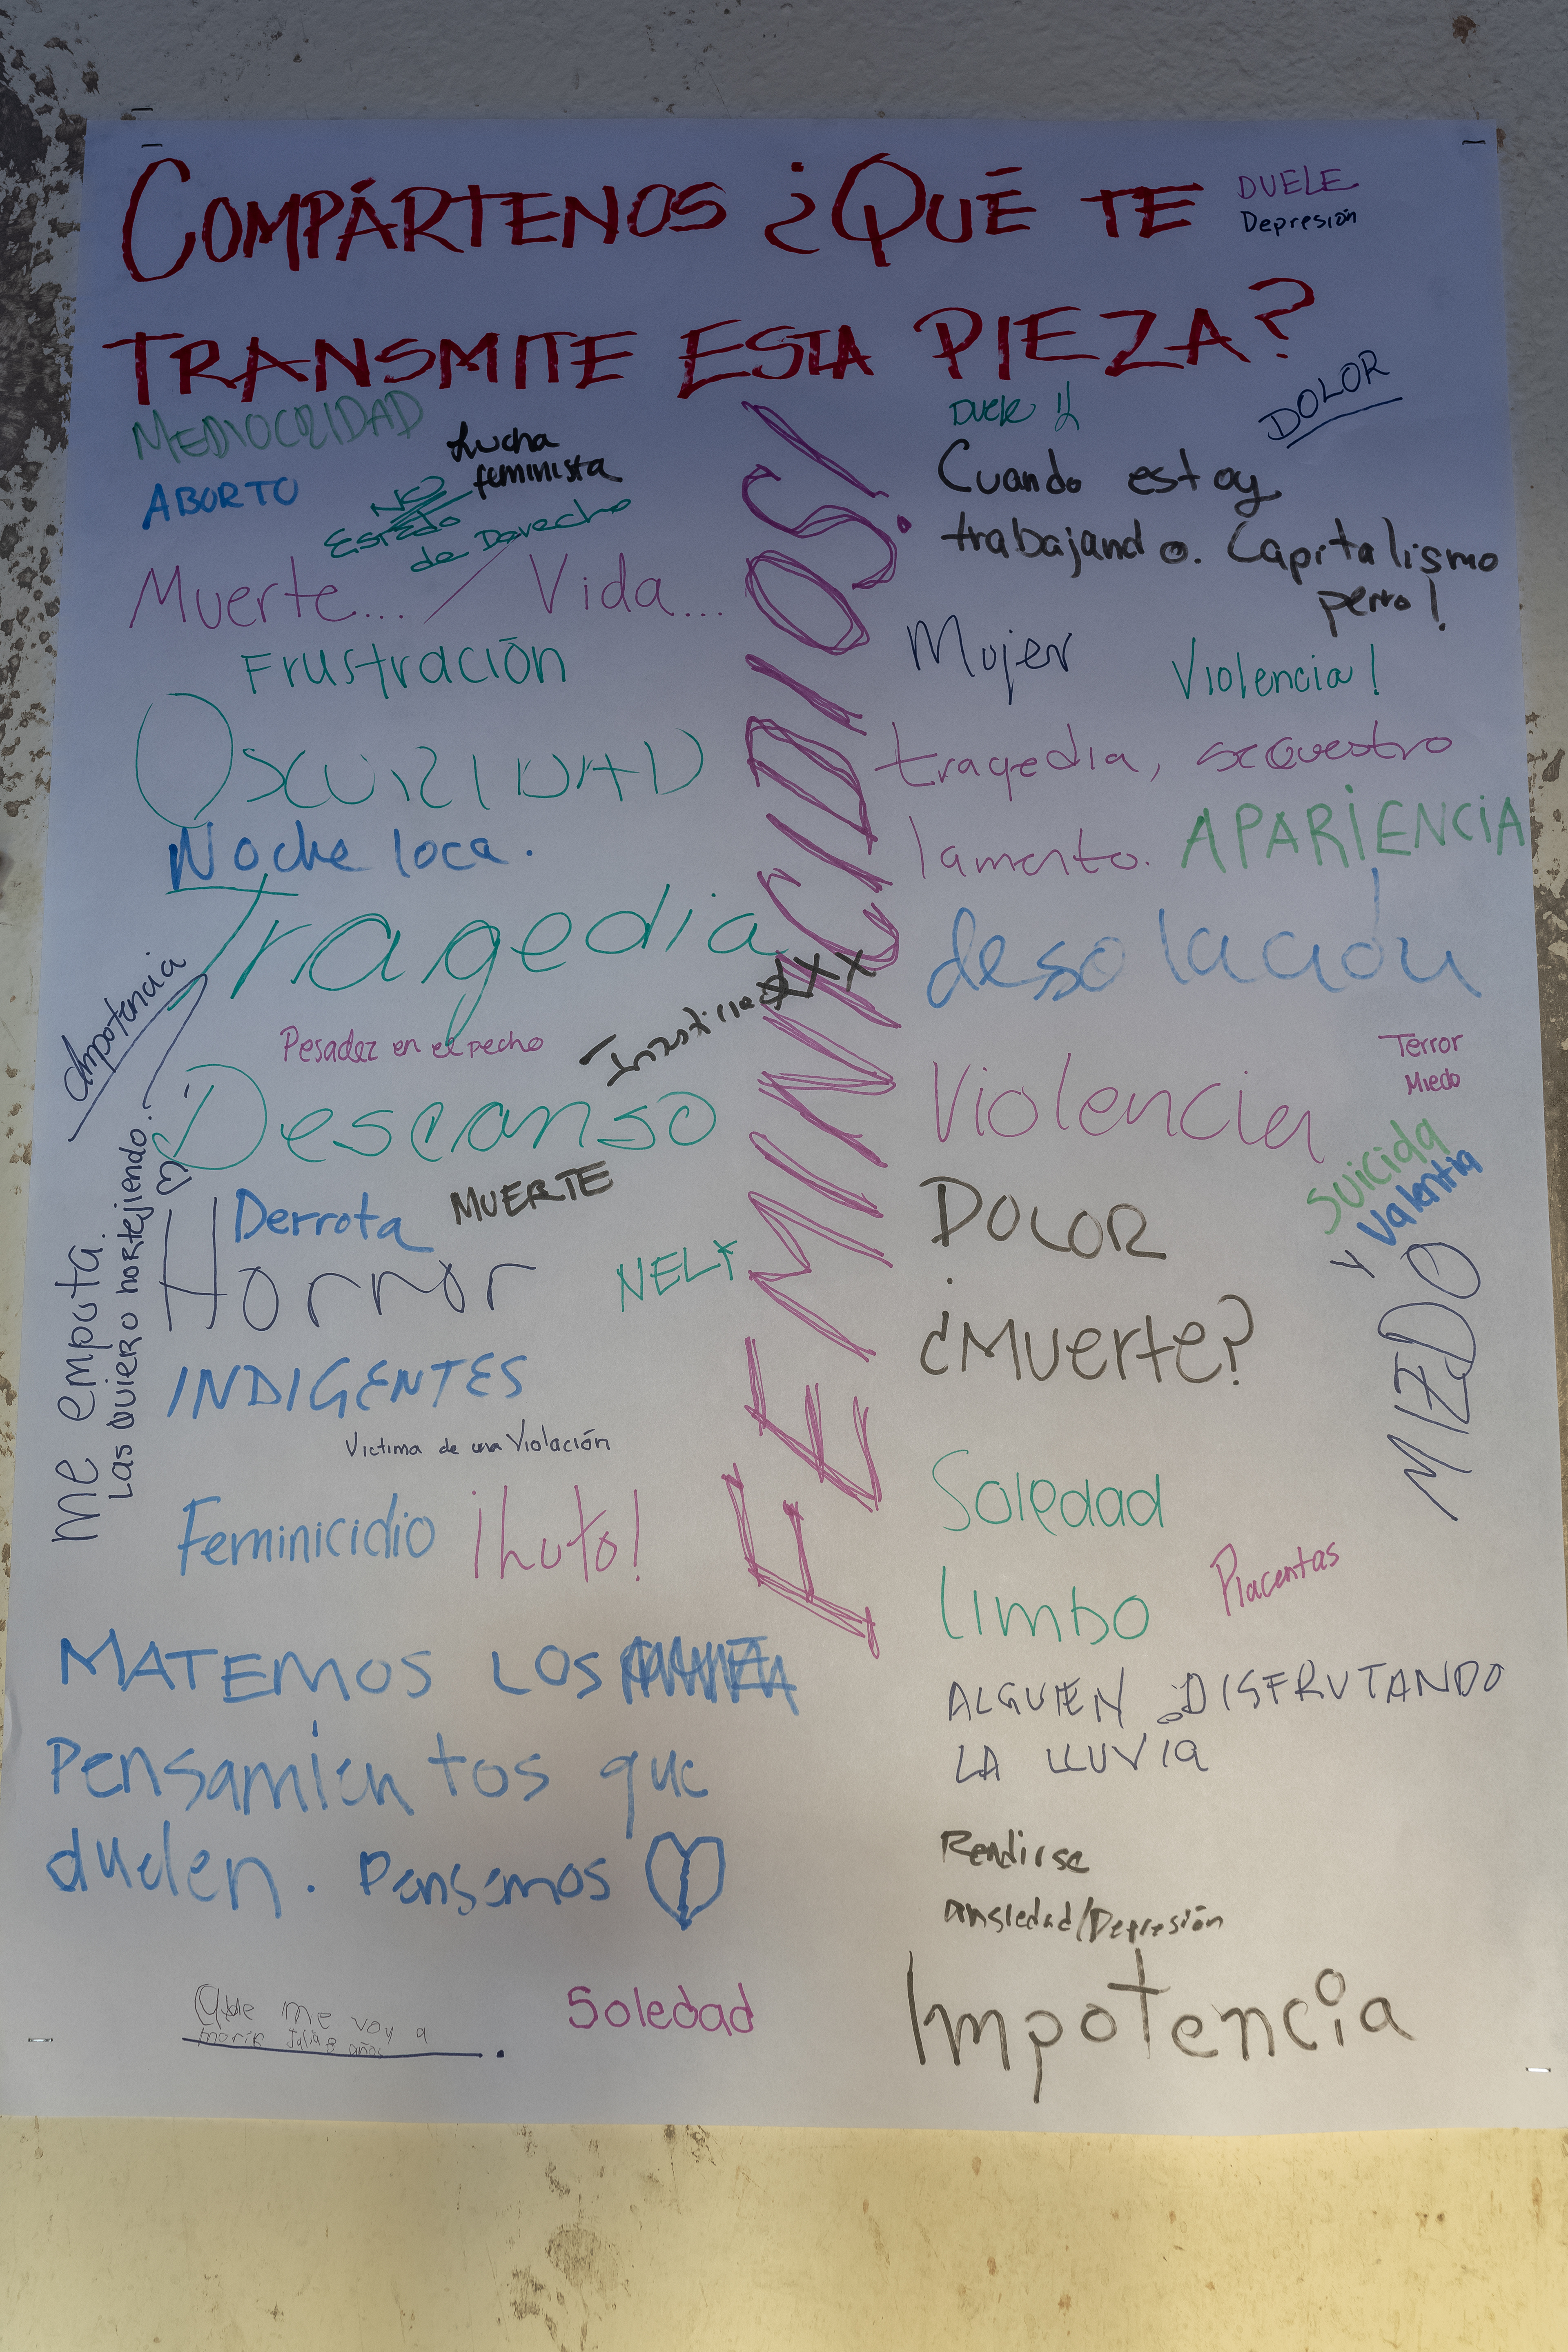 COMPÁRTENOS ¿QUÉ TE
TRANSMITE ESTA PIEZA?
DUELE
Depresión
MEDIOCRIDAD
ABORTO
Lucha
feminista
NO
Estado
de Derecho
Muerte... / Vida...
Frustración
OSCURIDAD
Noche loca.
Tragedia
Impotencia
Pesadez en el pecho
Descanso
me emputa.
Las quiero hortejiendo.
Derrota
MUERTE
Horror
NELY
INDIGENTES
Victima de una Violación
Feminicidio ¡Luto!
MATEMOS LOS
Pensamientos que
duelen. Pensemos
Que me voy a
morir Julia 8 años
Soledad
FEMINICIDIOS!
Duele
DOLOR
Cuando estoy
trabajando. Capitalismo
perro!
Mujer
Violencia!
tragedia, secuestro
lamento.
APARIENCIA
desolación
Violencia
Terror
Miedo
Suicida
y Valentia
DOLOR
¿Muerte?
MIEDO
Soledad
Limbo
Placentas
ALGUIEN DISFRUTANDO
LA LLUVIA
Rendirse
ansiedad/Depresión
Impotencia